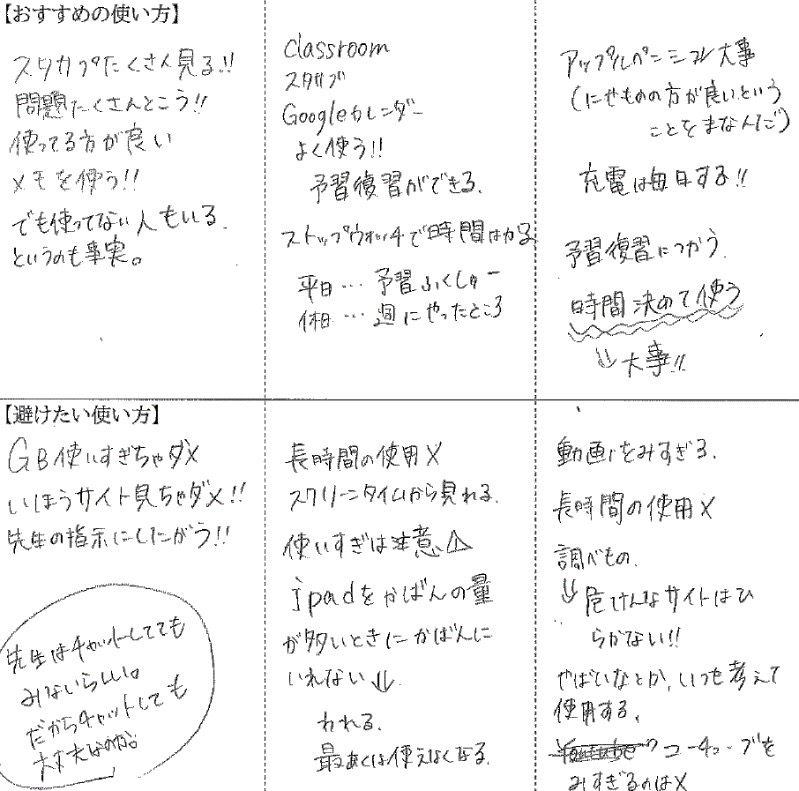 【おすすめの使い方】
スタサプたくさん見る!!
問題たくさんとこう!!
使ってる方が良い
メモを使う!!
でも使ってない人もいる
というのも事実。
Classroom
スタサプ
Googleカレンダー
よく使う!!
予習復習ができる.
ストップウォッチで時間はかる
平日…予習ふくしゅー
休日…週にやったところ
アップルペンシル大事
(にせものの方が良いという
ことをまなんだ)
充電は毎日する!!
予習復習につかう.
時間決めて使う
⇓大事!!
【避けたい使い方】
GB使いすぎちゃダメ
いほうサイト見ちゃダメ!!
先生の指示にしたがう!!
先生はチャットしてても
みないらしい。
だからチャットしても
大丈夫なのか。
長時間の使用×
スクリーンタイムから見れる.
使いすぎは注意⚠
ipadをかばんの量
が多いときにかばんに
いれない⇓
われる.
最あくは使えなくなる.
動画をみすぎる.
長時間の使用×
調べもの.
⇓危けんなサイトはひ
らかない!!
やばいなとか、いつも考えて
使用する.
ユーチューブを
みすぎるのは×